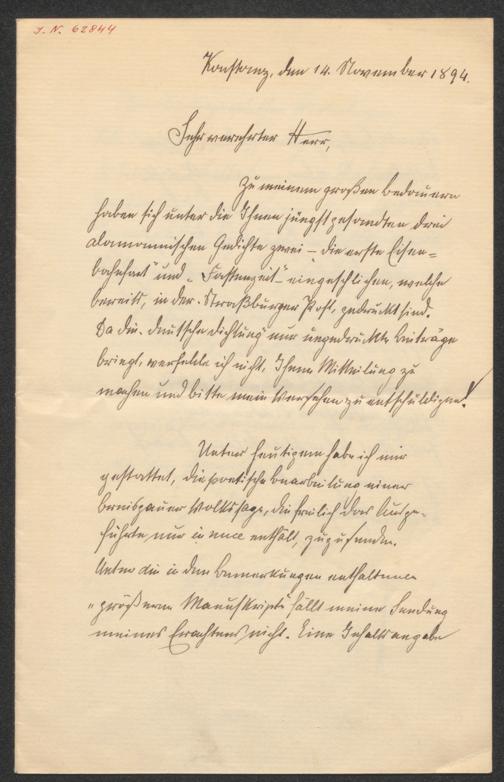 J. N. 62844
Konstanz, den 14. November 1894.
Sehr verehrter Herr,
Zu meinem großen Bedauern
haben sich unter die Ihnen jüngst gesandten drei
alamannischen Gedichte zwei – „die erste Eisen=
bahnfart" und „Fastenzeit" – eingeschlichen, welche
bereits, in der „Straßburger Post", gedruckt sind.
Da die „deutsche Dichtung" nur ungedruckte Beiträge
bringt, verfehle ich nicht, Ihnen Mitteilung zu
machen und bitte mein Versehen zu entschuldigen!
Unter heutigem habe ich mir
gestattet, die poetische Bearbeitung einer
breisgauer Volkssage, die freilich das Ausge-
führte nur in nuce enthält, zuzusenden.
Unter die in den Bemerkungen enthaltenen
„größeren Manuskripte" fällt meine Sendung
meines Erachtens nicht. Eine Inhaltsangabe